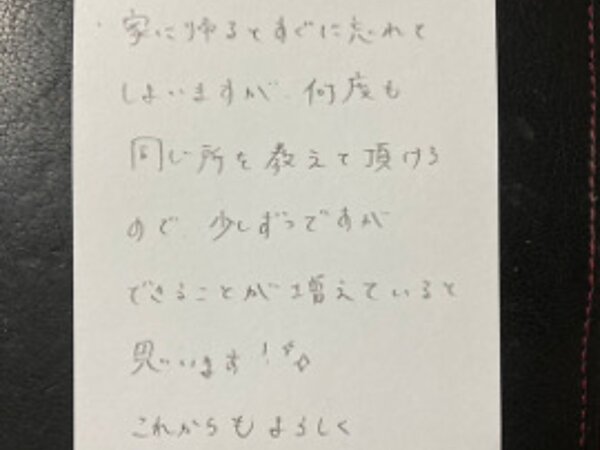 家に帰るとすぐに忘れて
しまいますが、何度も
同じ所を教えて頂ける
ので、少しずつですが
できることが増えていると
思います!
これからもよろしく